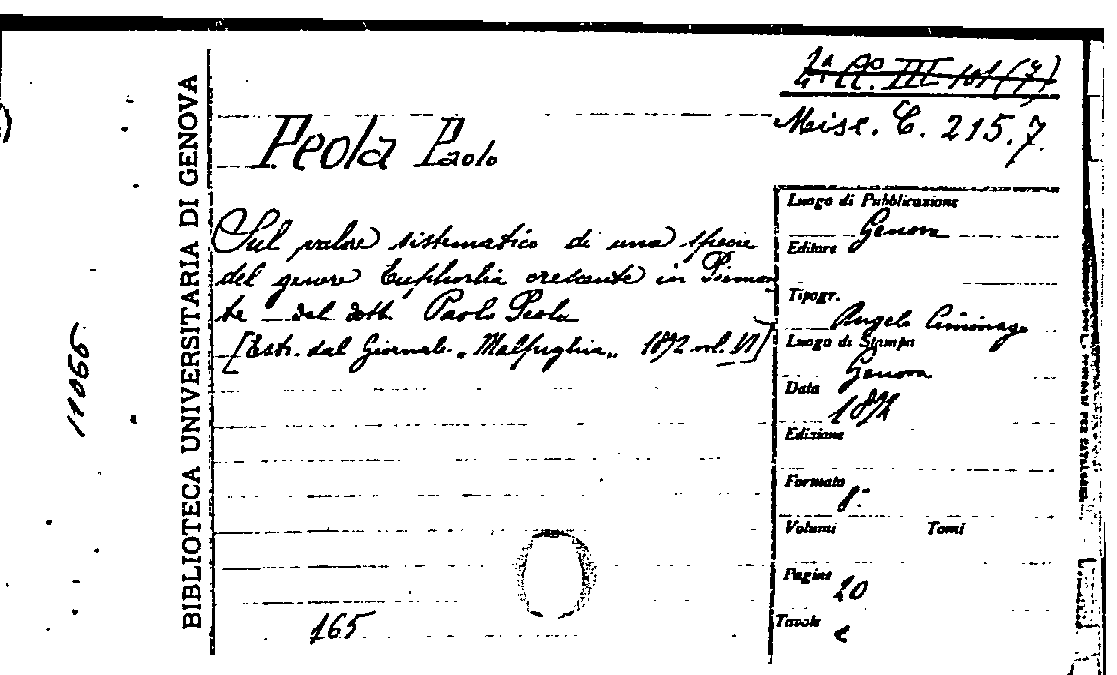 2ª CC. III 101 (7)
Misc. C. 215.7.
Peola Paolo
Sul valore sistematico di una specie
del genere Euphorbia crescente in Piemon
te _ del dott. Paolo Peola
[Estr. dal Giornale „Malpighia„ 1892 vol. VI]
165
BIBLIOTECA UNIVERSITARIA DI GENOVA
11055
Luogo di Pubblicazione
Genova
Editore
Tipogr.
Angelo Ciminago
Luogo di Stampa
Genova
Data
1892
Edizione
Formato
8°
Volumi Tomi
Pagine
20
Tavole